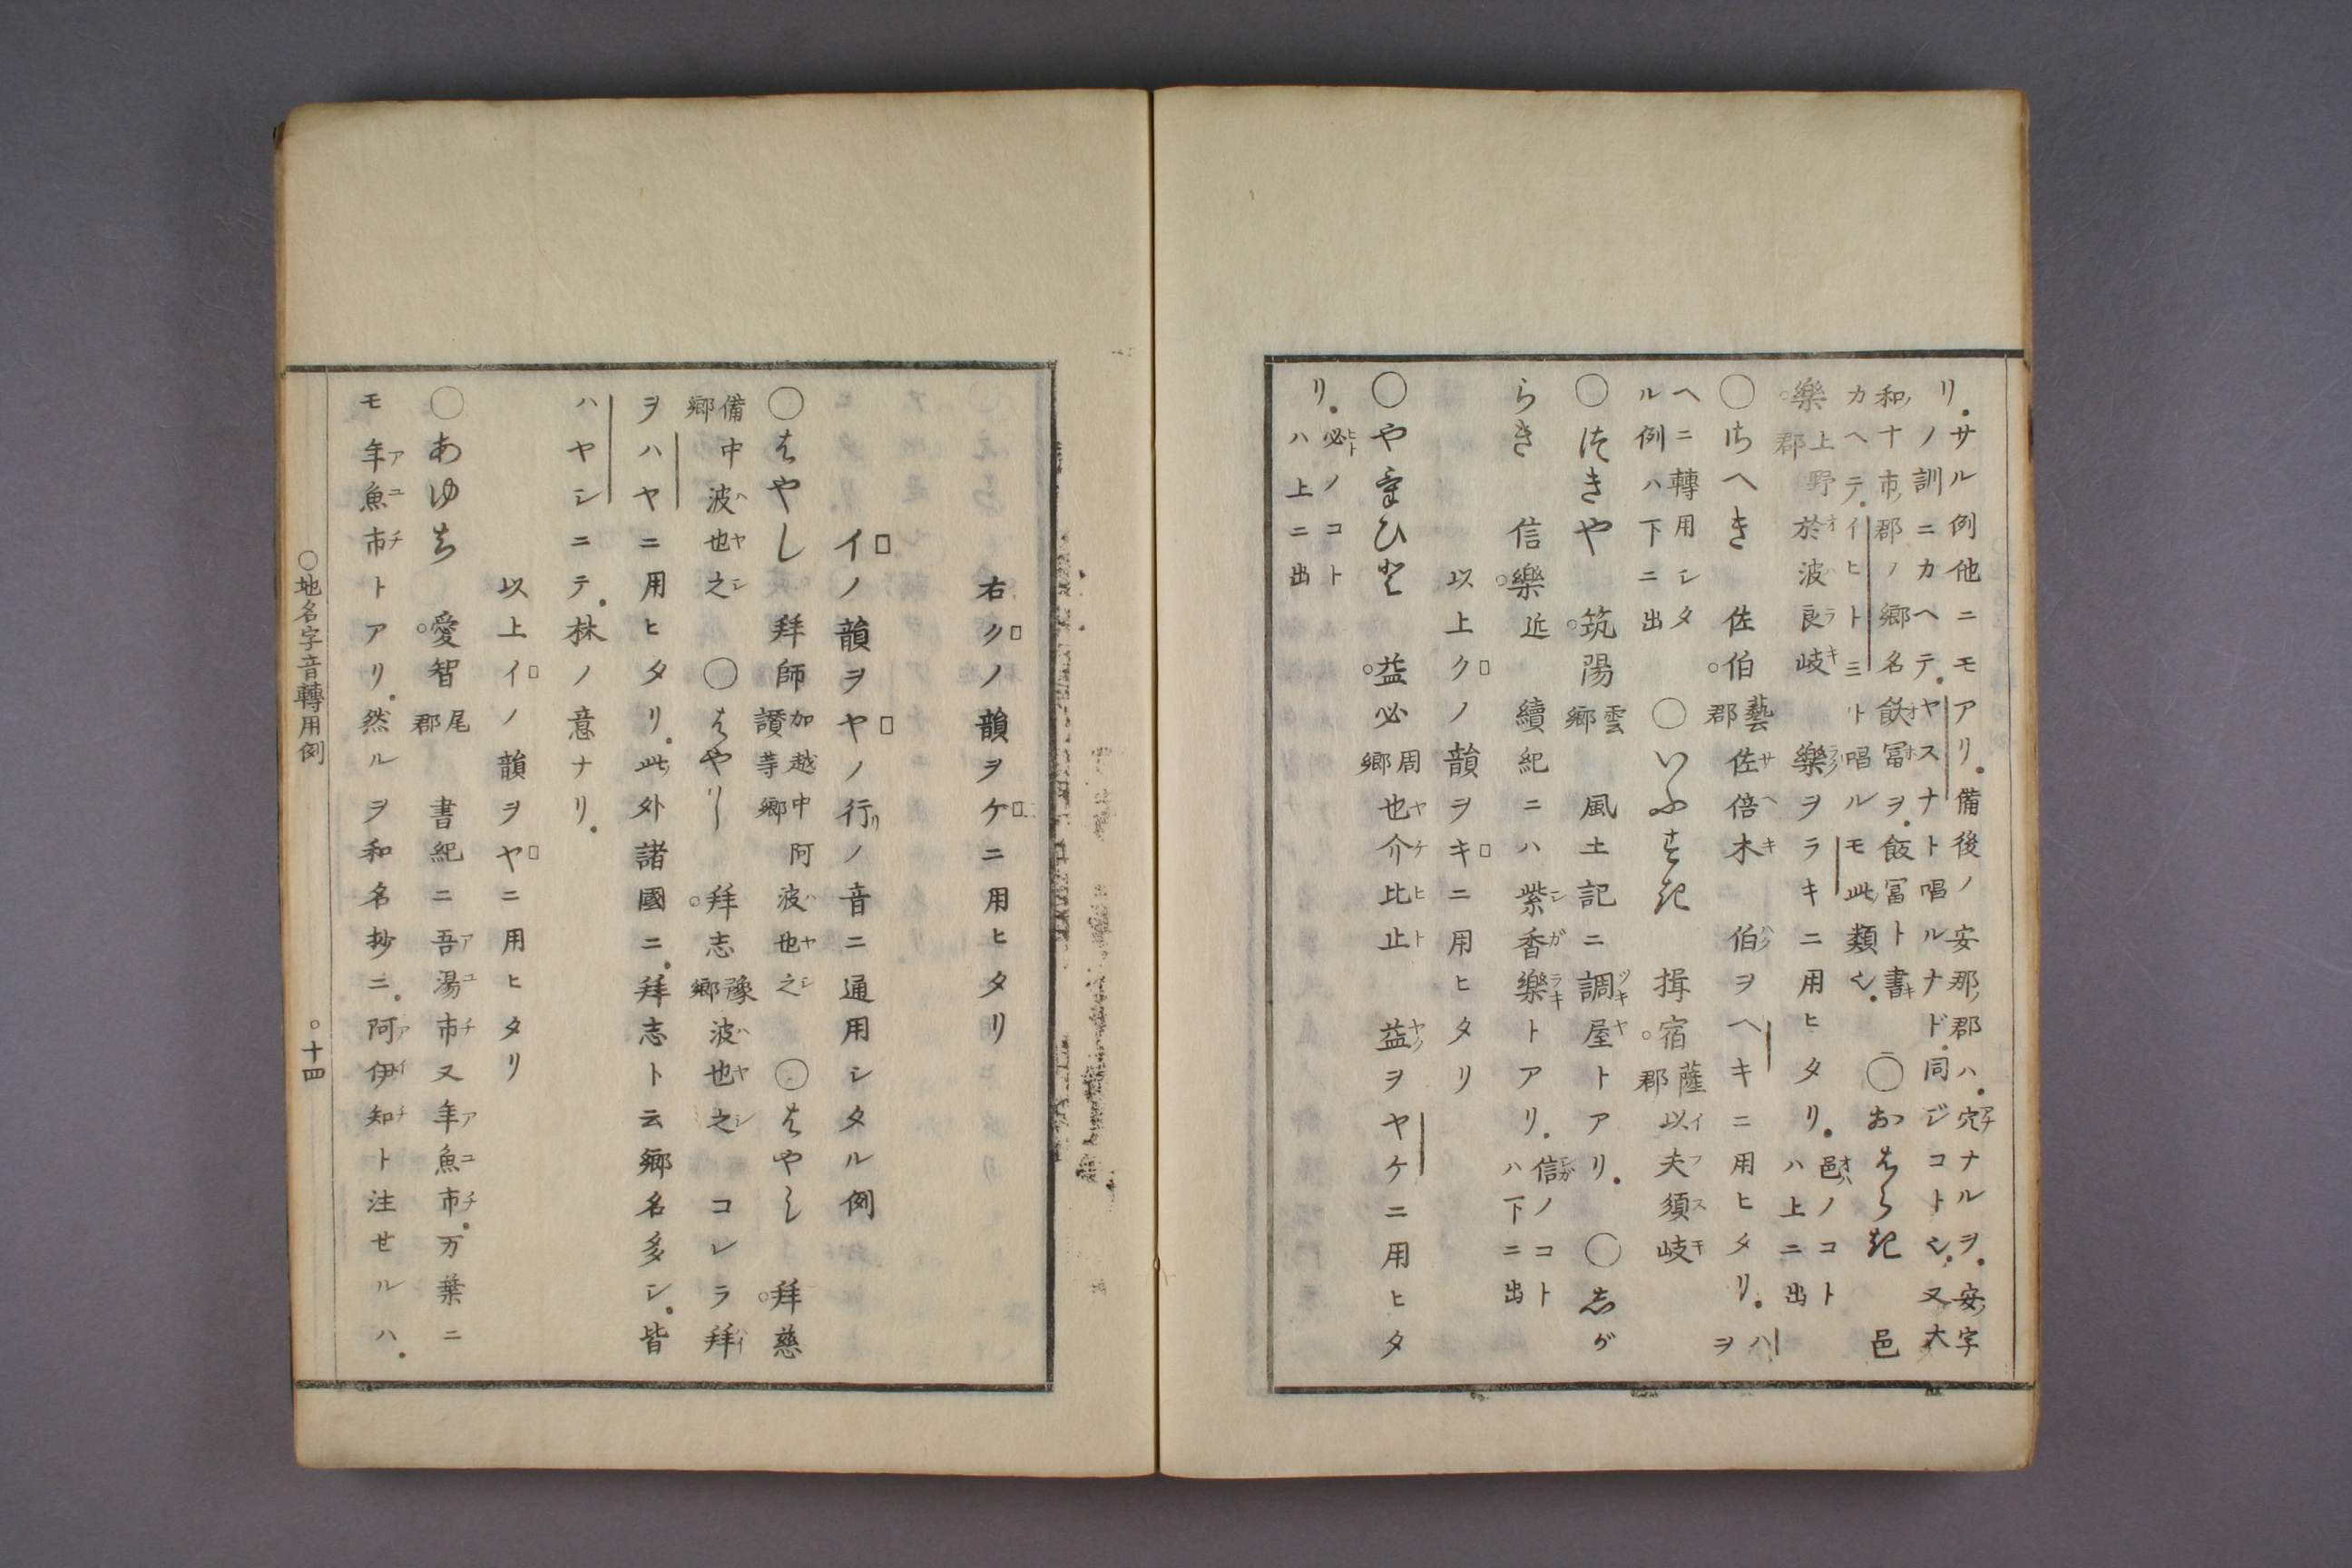 リ。サル例他ニモアリ。備後ノ安那ノ郡ハ。穴ナルヲ。安ノ字
ノ訓ニカヘテ。ヤスナト唱ルナド。同ジコト也。又大
和ノ十市ノ郡ノ郷名飫冨ヲ。飯冨ト書キ
カヘテ。イヒトミト唱ルモ此ノ類也。○おはらき 邑
樂上野郡 於波良岐 樂ヲラキニ用ヒタリ。邑ノコトハ上ニ出
○さへき 佐伯藝郡 佐倍木 伯ヲヘキニ用ヒタリ。ハヲ
ヘニ轉用シタル例ハ下ニ出
○つきや 筑陽雲郷 風土記ニ調屋トアリ。○しが
○いふすき 揖宿薩郡 以夫須岐
らき 信樂近 續紀ニハ紫香樂トアリ。信ノコトハ下ニ出
以上クノ韻ヲキニ用ヒタリ
○やけひと 益必周郷 也介比止 益ヲヤケニ用ヒタ
リ。必ノコトハ上ニ出
右クノ韻ヲケニ用ヒタリ
イノ韻ヲヤノ行ノ音ニ通用シタル例
○はやし 拜師加越中讚等郷 阿波也之 ○はやし 拜慈
備中郷 波也之 ○はやし 拜志豫郷 波也之 コレラ拜
ヲハヤニ用ヒタリ。此ノ外諸國ニ。拜志ト云郷名多シ。皆
ハヤシニテ。林ノ意ナリ。
以上イノ韻ヲヤニ用ヒタリ
○あゆち 愛智尾郡 書紀ニ吾湯市又年魚市。万葉ニ
モ年魚市トアリ。然ルヲ和名抄ニ。阿伊知ト注セルハ。
○地名字音轉用例 ○十四